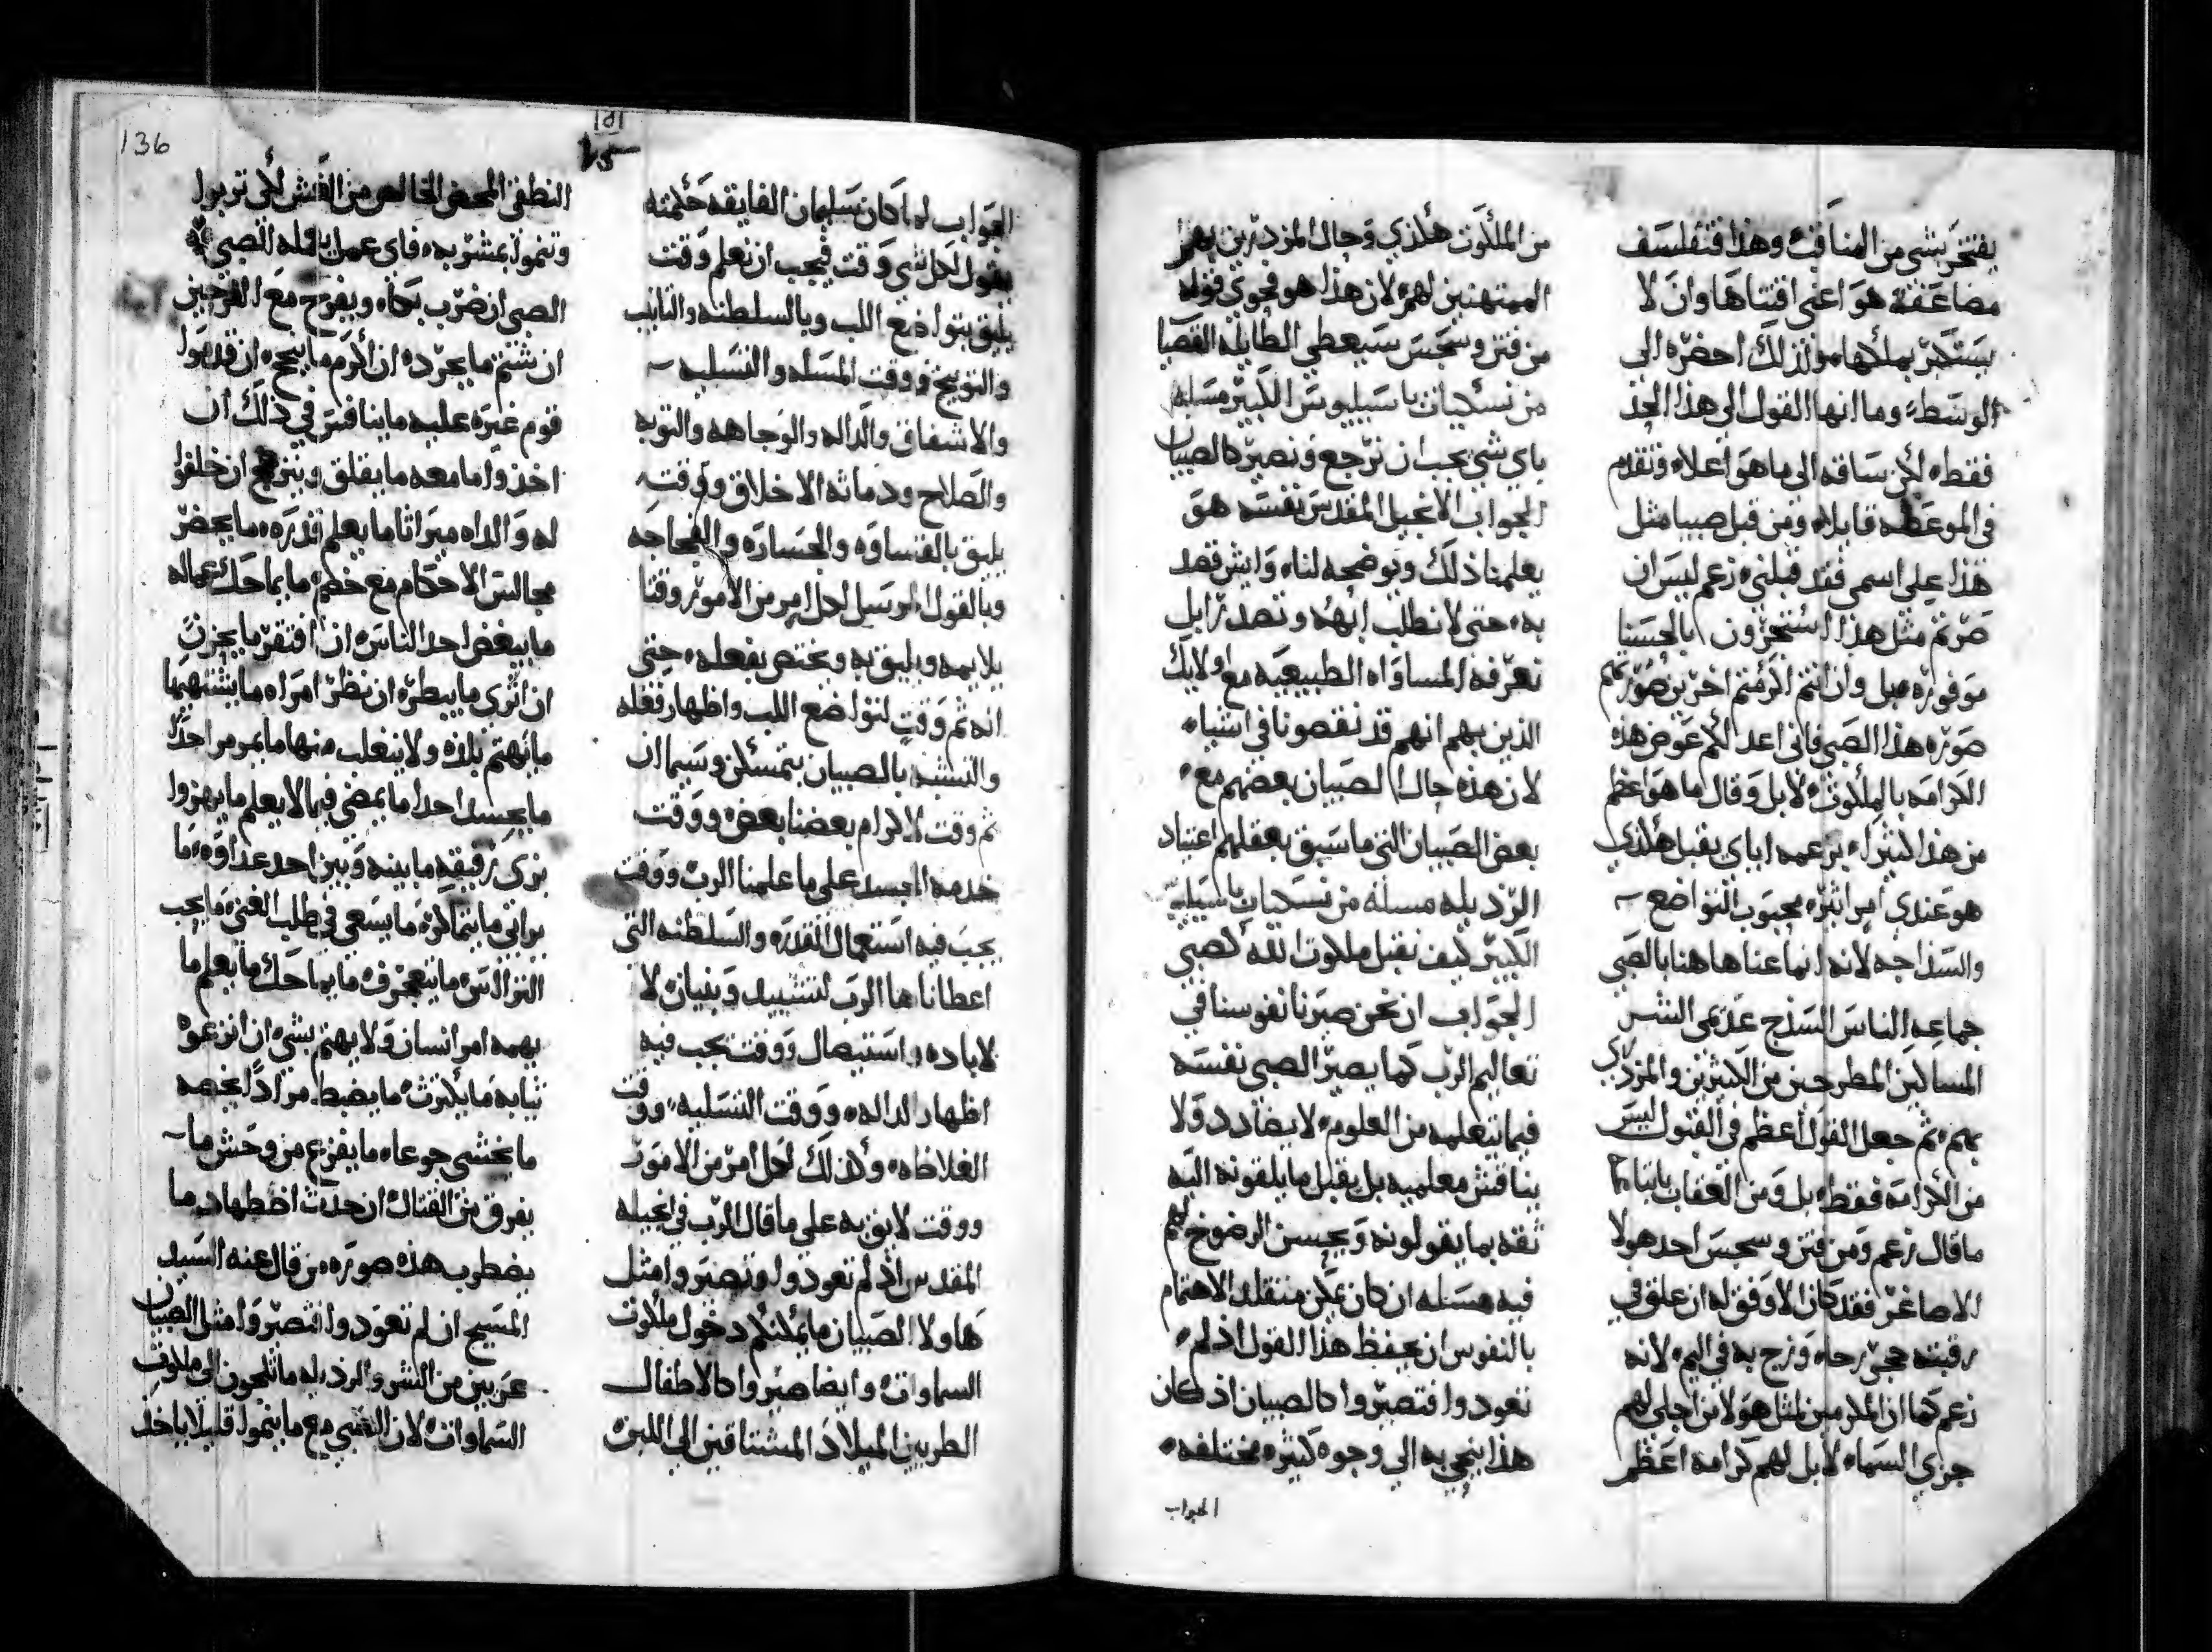 يفتخر بشي من المناقب وهذا فتفلسف
مضاعفة هو اعني اقتناها وان لا
يستكبر بملكها ولذلك احضره الى
الوسط وما انها القول الى هذا الحد
فقط لكن ساقه الى ما هو اعلا وتقدم
في الموعظه قايلا ومن قبل صبيا مثل
هذا على اسمي فقد قبلني زعم ليس ان
صرتم مثل هذا استحرزون بالحسنا
موفوره بل وان انتم اكرمتم اخرين صورتهم
صوره هذا الصبي فاني اعد لكم عوض هذه
الكرامه بالملكوت لا بل وقال ما هو اعظم
من هذا كثيرا بزعمه اياي يقبل هكذي
هو عندي اميرا ثره محبوب التواضع
والسذاجه لانه انما عنا هاهنا بالصبي
جماعه الناس السذج عديمي الشر
المساكين المطرحين من الكثيرين والمزدري
بهم ثم جعل القول اعظم في القبول ليس
من الكرامه فقط بل ومن العقاب باتباع
ما قال زعم ومن فتن وسجس احد هولا
الاصاغر فقد كان الاوفق له ان علق في
رقبته حجر رحا وزج به في اليم لانه
زعم كما ان المكرمين لمثل هولا من اجلي لهم
جزي السماء لا بل لهم كرامة اعظم
من الملكوت هكذي وحال المزدرين بهم
الممتهنين لهم لان هذا هو فحوي قوله
من فتن وسجس سيعطي الطايله القصيا
من نسكيات باسيليوس الكبير مسله
باي شي يجب ان نرجع ونصير كالصبيان
الجواب الانجيل المقدس نفسه هو
يعلمنا ذلك ويوضحه لنا وايش قصد
به حتى لا نطلب ابهه وتصدرا بل
نعرف المساواه الطبيعيه مع اولايك
الذين بهم انهم قد نقصونا في اشياء
لان هذه حال الصبيان بعضهم مع
بعض الصبيان التي ما سبق بعقلهم اعتياد
الرذيله مسله من نسكيات باسيليوس
الكبير كيف نقبل ملكوت الله كصبي
الجواب ان نحن صيرنا نفوسنا في
تعاليم الرب كما يصير الصبي نفسه
فيما يتعلمه من العلوم لا يضادد ولا
يناقش معلميه بل يقبل ما يلقونه اليه
ثقه بما يقولونه ويحسن الرضوخ لهم
فيه مسله ان كان يمكن متقلد الاهتمام
بالنفوس ان يحفظ هذا القول اذ لم
تعودوا فتصيروا كالصبيان اذ كان
هذا ينحي به الي وجوه كثيره مختلفه
الجواب
136
الجواب لما كان سليمان الفايقه حكمته
يقول لكل شي وقت فيجب ان نعلم وقت
يليق بتواضع اللب وبالسلطنه والتانيب
والتوبيخ ووقت المسله والتسليه
والاشفاق والداله والوجاهه والتوبه
والصلاح ودماثه الاخلاق ووقت
يليق بالقساوه والجساره والفجاجه
وبالقول المرسل لكل امر من الامور وقتا
يلايمه ويليق به ويختص بفعله حتى
انه ثم وقت لتواضع اللب واظهار فعله
والتشبه بالصبيان بتمسكن وسيما ان
ثم وقت لاكرام بعضنا بعض ووقت
خدمه الجسد على ما علمنا الرب ووقت
يجب فيه استعمال القدره والسلطنه التي
اعطاناها الرب لتشييد وبنيان لا
لاباده واستيصال ووقت يجب فيه
اظهار الداله ووقت التسليه ووقت
الغلاظه وكذلك لكل امر من الامور
ووقت لايق به على ما قال الرب في انجيله
المقدس اذ لم تعودوا وتصيروا مثل
هاولا الصبيان ما يمكنكم دخول ملكوت
السماوات وايضا صيروا كالاطفال
الطريين الميلاد المشتاقين الى اللبن
النطقي المحض الخالص من الغش لكي تربوا
وتنموا بمشربه فاي عمل يعمله الصبي
الصبي ان ضرب بكاه ويفرح مع الفرحين
ان شتم ما يحرد ان اكرم ما يبجح ان قدموا
قوم غيره عليه ما ينافس في ذلك ان
اخذوا ما معه ما يقلق وينزعج ان خلفوا
له والداه ميراثا ما يعلم قدره ما يحضر
مجالس الاحكام مع خصم ما يماحك عماله
ما يبغض احد الناس ان افتقر ما يحزن
ان اثري ما يبطر ان نظر امراه ما يشتهيها
ما يهتم بلذه ولا ينغلب منها ما يمرمر احدا
ما يحسد احدا ما يمضي فيما لا يعلم ما يهزوا
بزي رفيقه ما بينه وبين احد عداوه ما
يراتي ما يتماكر ما يسعى في طلب الغنى ما يحب
النزالس ما يتعجرف ما يماحك ما يعلم ما
يهمه امر انسان ولا يهتم بشي ان انزعوه
ثيابه ما يكترث ما يضبط مرادا يخصه
ما يخشي جوعا ما يفزع من وحش ما
يفرق من القتال ان حدث اضطهاد ما
يضطرب هذه صوره من قال عنه السيد
المسيح ان لم تعودوا فتصيروا مثل الصبيان
عريين من الشر والرذيله ما تلجون الى ملكوت
السماوات لان الصبي مع ما ينموا قليلا ياخذ